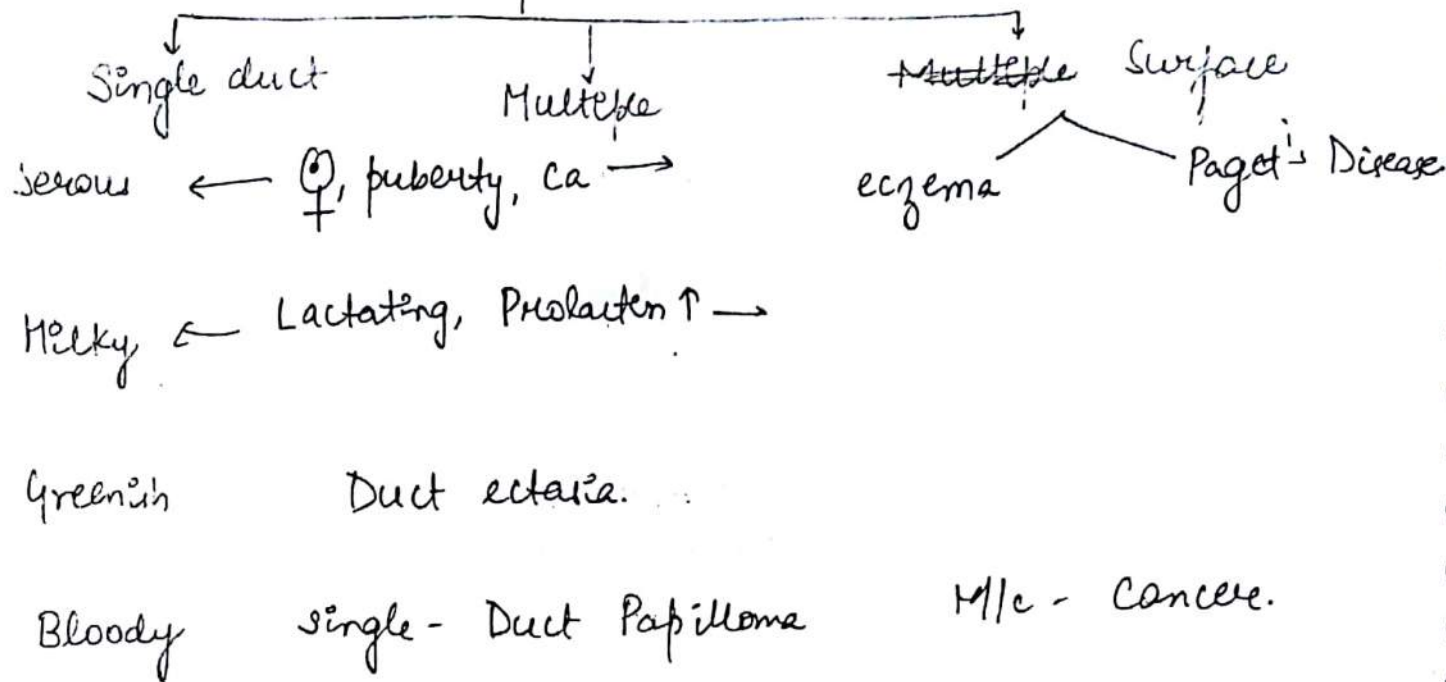 Single duct
Multiple
Multiple Surface
serous ← ♀, puberty, ca →
eczema
Paget's Disease
Milky ← Lactating, Prolacten ↑ →
Greenish Duct ectasia.
Bloody single - Duct Papilloma M/c - Cancere.